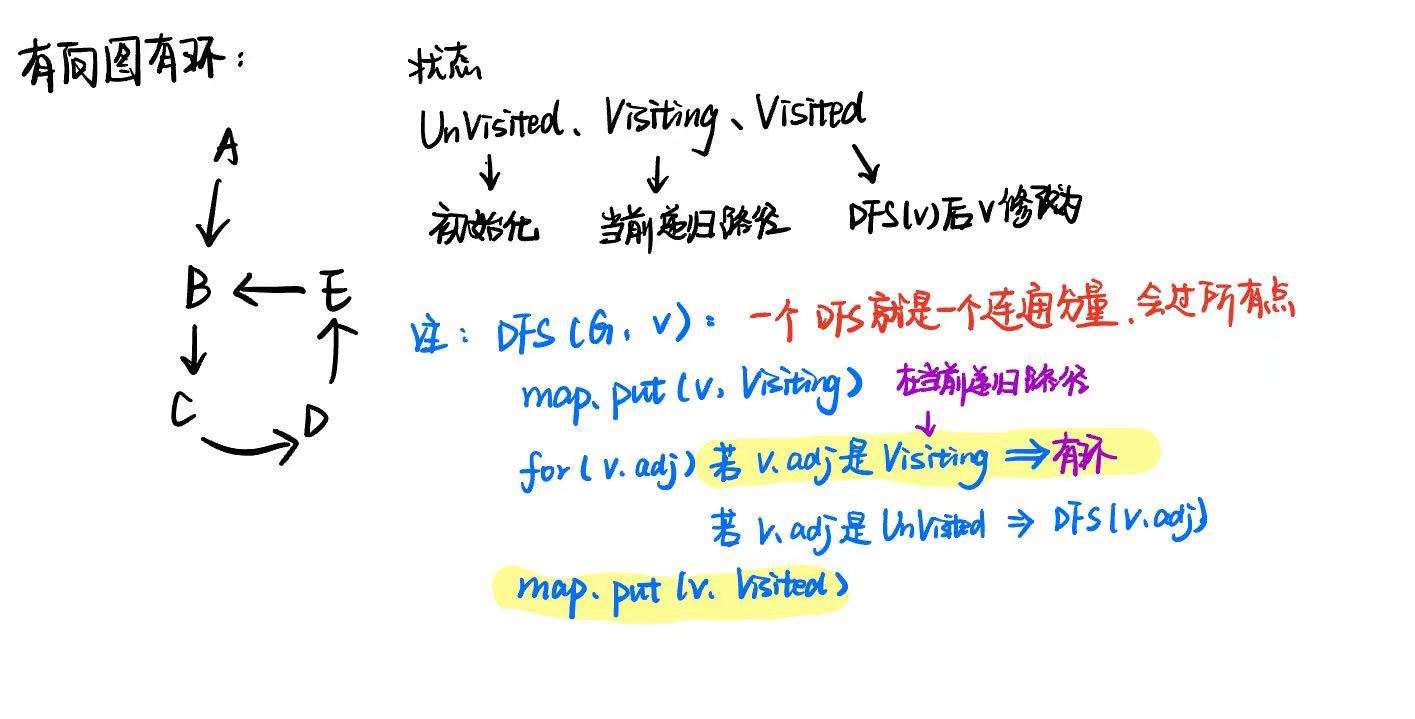 有向图有环：
状态
UnVisited、Visiting、Visited
初始化 当前递归路径 DFS(v)后v修改为
A
B E
C D
注：DFS(G, v)：一个DFS就是一个连通分量,会过所有点
map.put(v, Visiting) 在当前递归路径
for(v.adj) 若 v.adj是Visiting ⇒ 有环
若 v.adj是UnVisited ⇒ DFS(v.adj)
map.put(v, Visited)